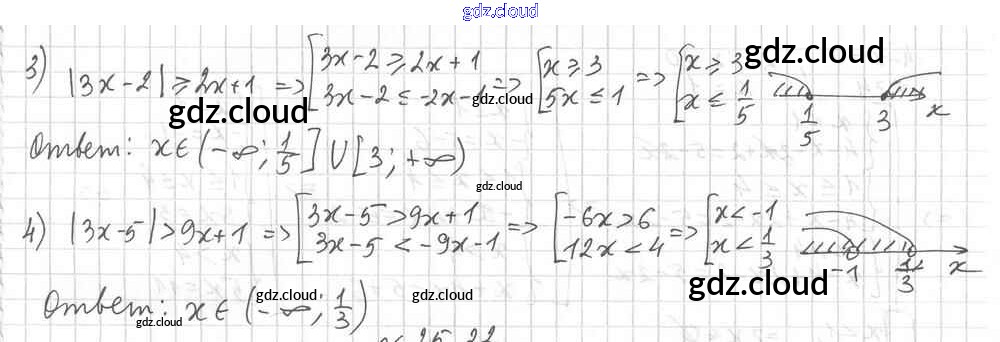 gdz.cloud
3) |3x-2| ⩾ 2x+1 => [3x-2 ⩾ 2x+1 [3x-2 ⩽ -2x-1 => [x ⩾ 3 [5x ⩽ 1 => [x ⩾ 3 [x ⩽ 1/5 1/5 3 x
gdz.cloud
gdz.cloud
gdz.cloud
Ответ: x ∈ (-∞; 1/5] ∪ [3; +∞)
gdz.cloud
4) |3x-5| > 9x+1 => [3x-5 > 9x+1 [3x-5 < -9x-1 => [-6x > 6 [12x < 4 => [x < -1 [x < 1/3 -1 1/3 x
gdz.cloud
Ответ: x ∈ (-∞; 1/3)
gdz.cloud
gdz.cloud
gdz.cloud